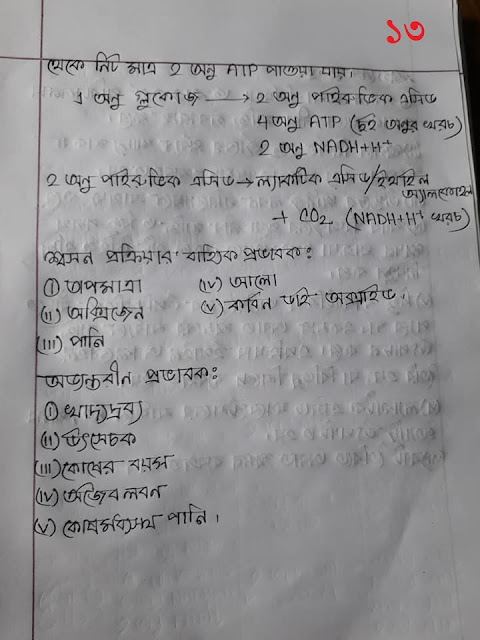 ১৩
থেকে নিট মাত্র ২ অনু ATP পাওয়া যায়।
১ অনু গ্লুকোজ → ২ অনু পাইরুভিক এসিড
4 অনু ATP (দুই অনুর খরচ)
2 অনু NADH+H+
২ অনু পাইরুভিক এসিড → ল্যাকটিক এসিড/ইথাইল অ্যালকোহল
+ CO2 (NADH+H+ খরচ)
শ্বসন প্রক্রিয়ার বাহ্যিক প্রভাবক:
(i) তাপমাত্রা (iv) আলো
(ii) অক্সিজেন (v) কার্বন ডাই অক্সাইড।
(iii) পানি
অভ্যন্তরীন প্রভাবক:
(i) খাদ্যদ্রব্য
(ii) উৎসেচক
(iii) কোষের বয়স
(iv) অজৈব লবন
(v) কোষমধ্যস্থ পানি।